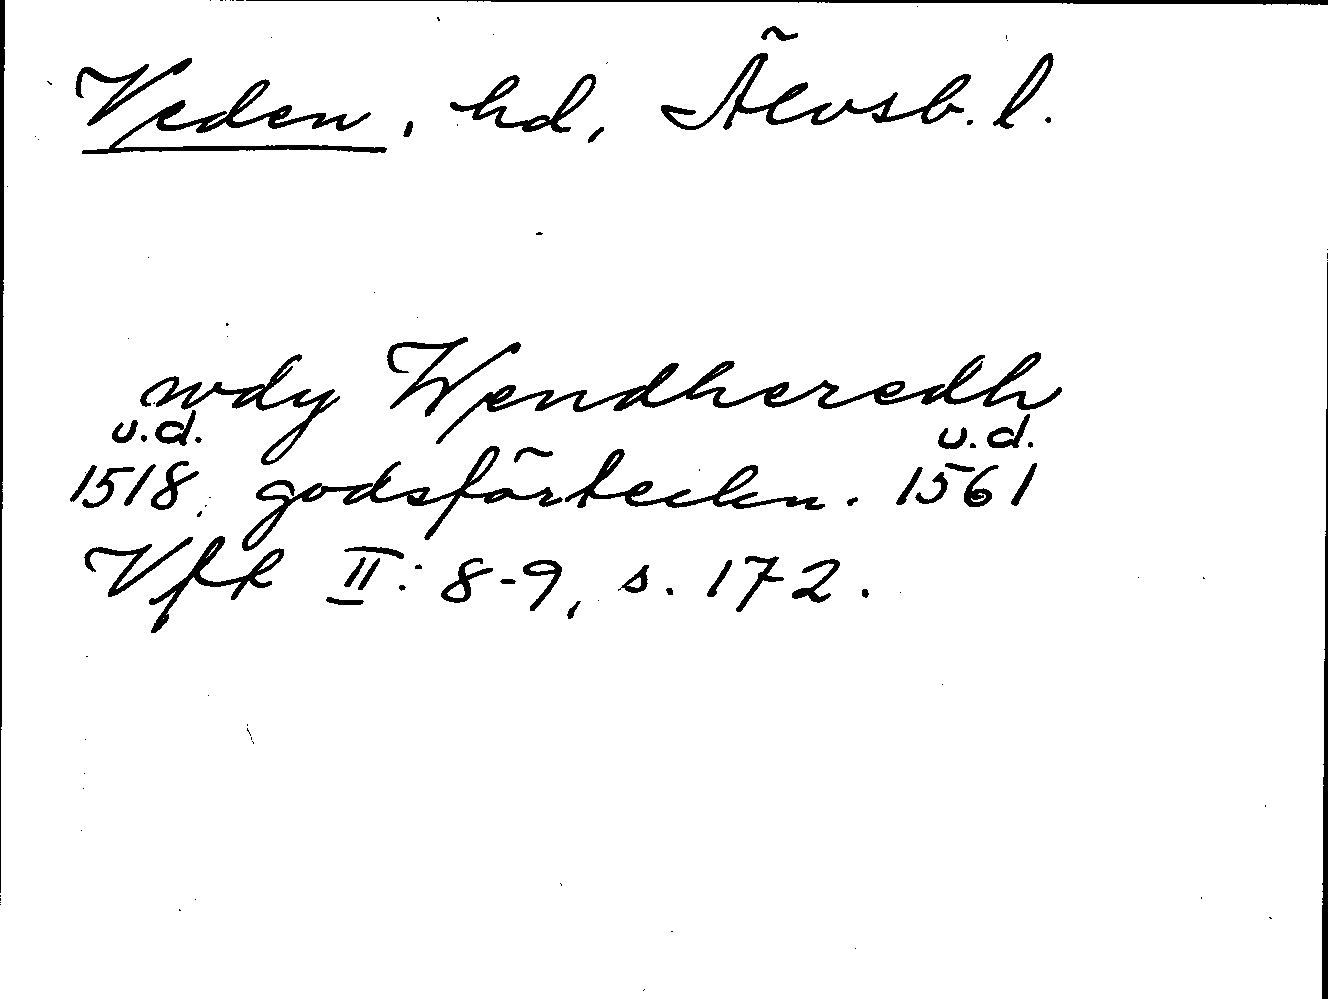 Veden, hd, Älvsb. l.
wdy Wendheredh
u.d. u.d.
1518. godsförteckn. 1561
Vfk II: 8-9, s. 172.